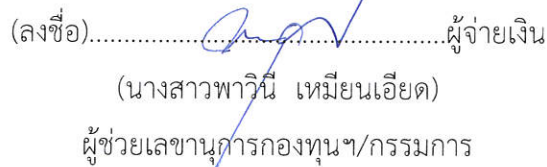 (ลงชื่อ)..................................................ผู้จ่ายเงิน
(นางสาวพาวินี เหมียนเอียด)
ผู้ช่วยเลขานุการกองทุนฯ/กรรมการ